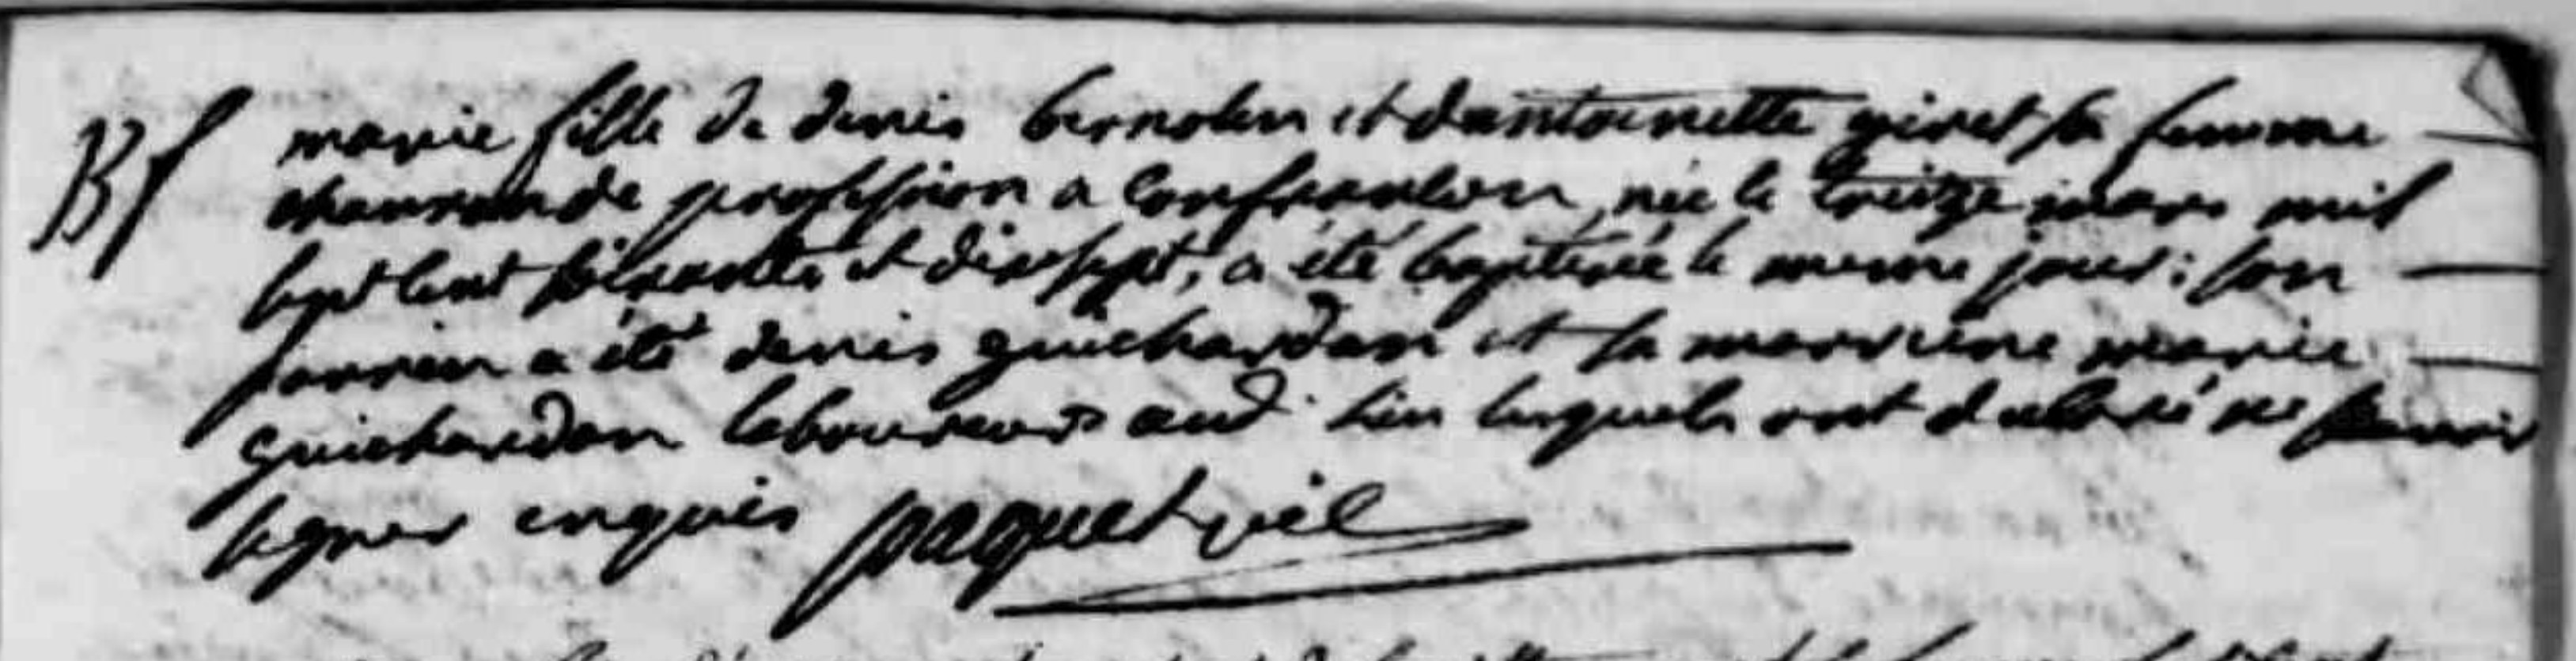 Bf marie fille de denis bernolin et dantoinette giret sa femme
de profession a Confrancon, née le treize mars mil
sept cent soixante et dix sept, a été baptisée le meme jour: son
parrein a été denis guichardan et sa marreine marie
guichardan laboureurs aud. lieu lesquels ont declaré ne savoir
signer enquis paquet vic